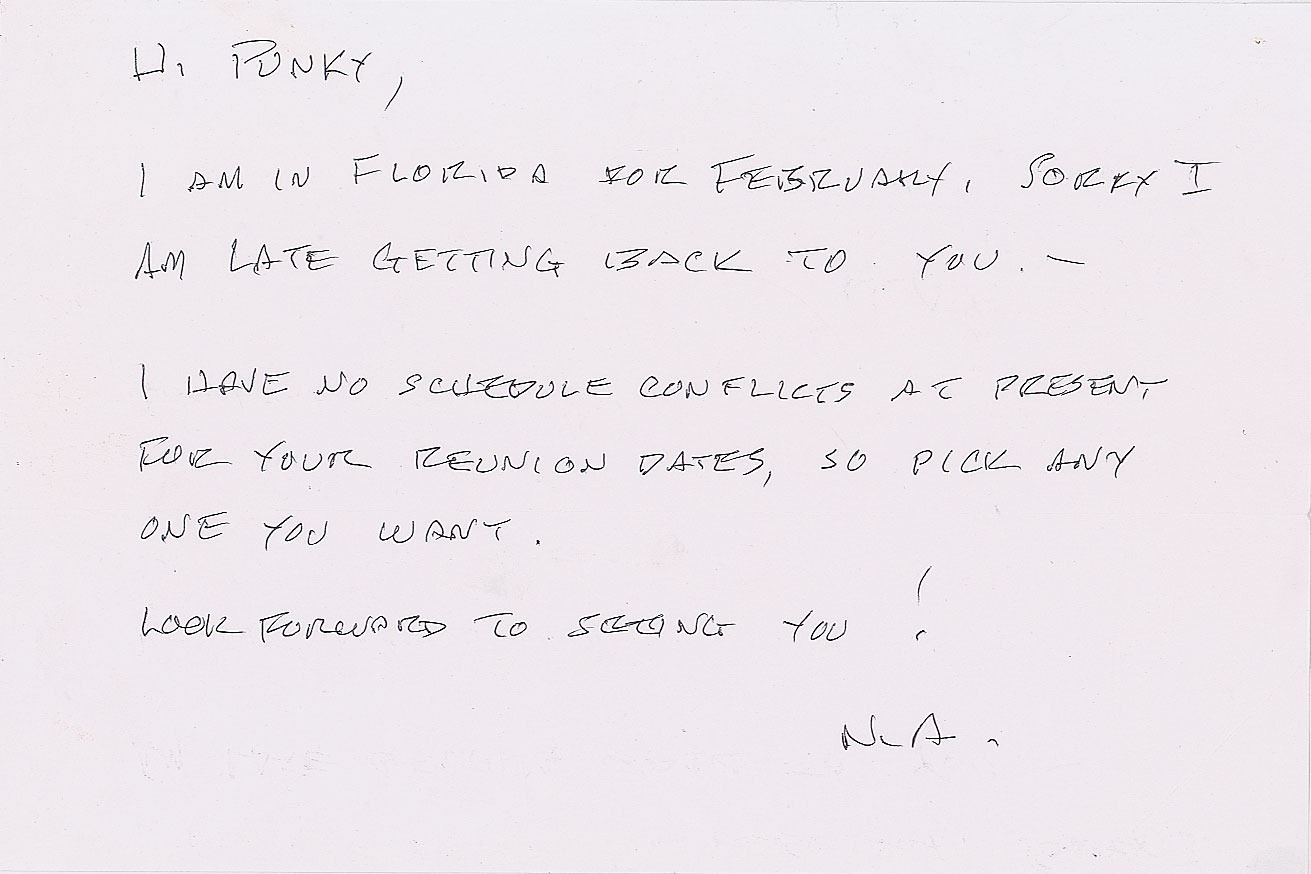 HI PUNKY,
I AM IN FLORIDA FOR FEBRUARY. SORRY I
AM LATE GETTING BACK TO YOU. —
I HAVE NO SCHEDULE CONFLICTS AT PRESENT
FOR YOUR REUNION DATES, SO PICK ANY
ONE YOU WANT.
LOOK FORWARD TO SEEING YOU!
N.A.